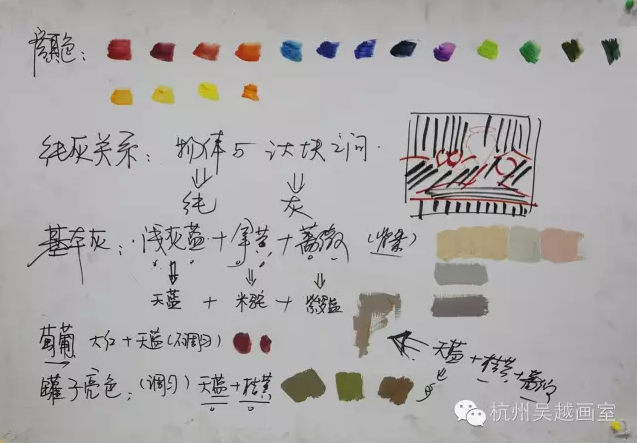 颜色：
纯灰关系：物体与衬块之间.
纯 灰
基本灰：浅灰蓝+犀黄+蔷薇（背景）
天蓝 + 米驼 + 紫罗兰
葡萄 大红+天蓝(不调匀)
天蓝+桔黄+蔷薇
罐子亮色：(调匀) 天蓝+桔黄
杭州吴越画室